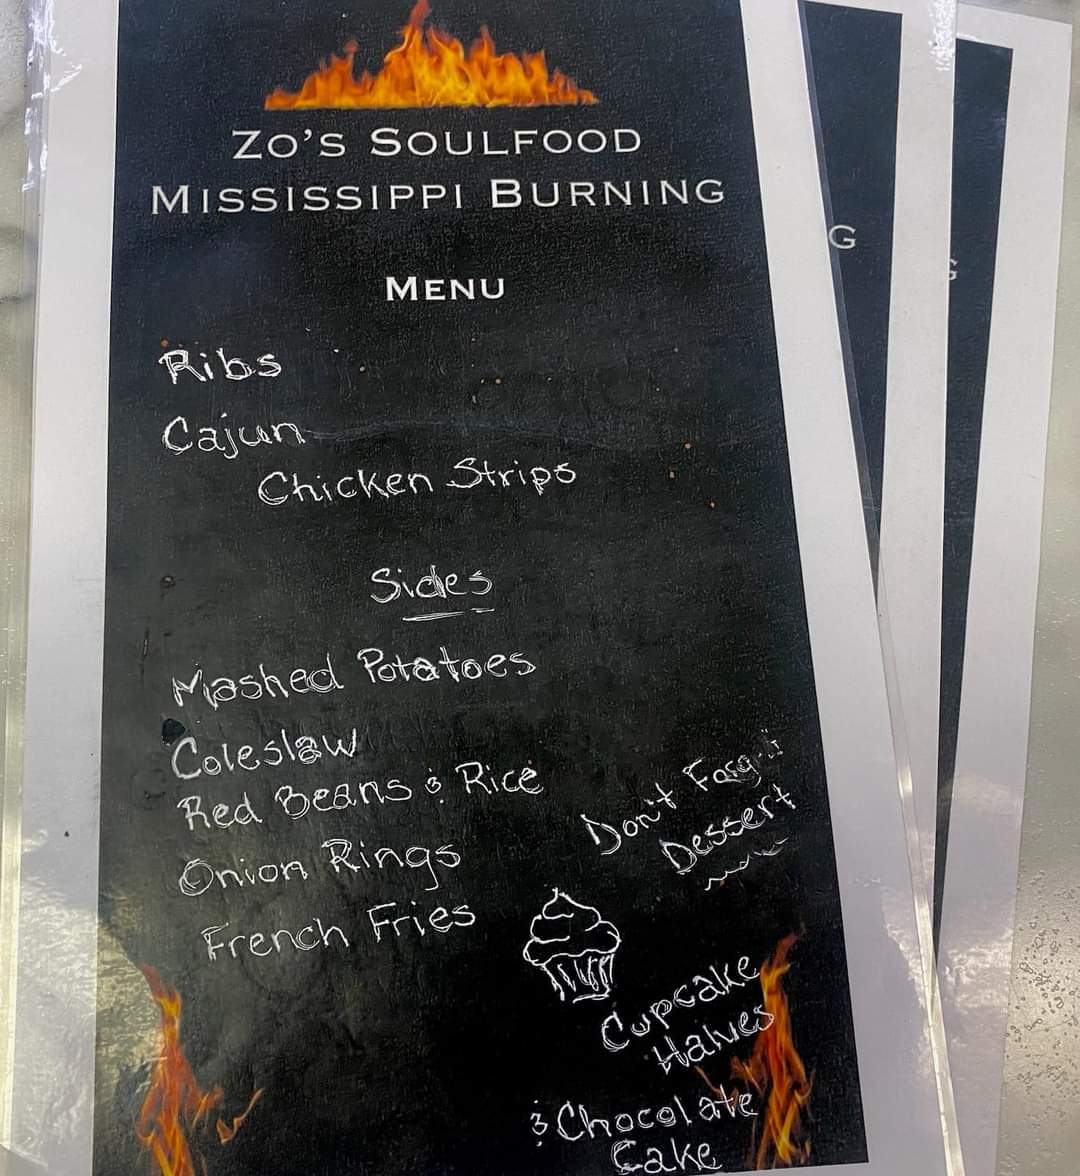 Zo's Soulfood
Mississippi Burning
Menu
Ribs
Cajun
Chicken Strips
Sides
Mashed Potatoes
Coleslaw
Red Beans & Rice
Onion Rings
French Fries
Don't
Dessert
Cupcake
Halves
& Chocolate
Cake
G
G